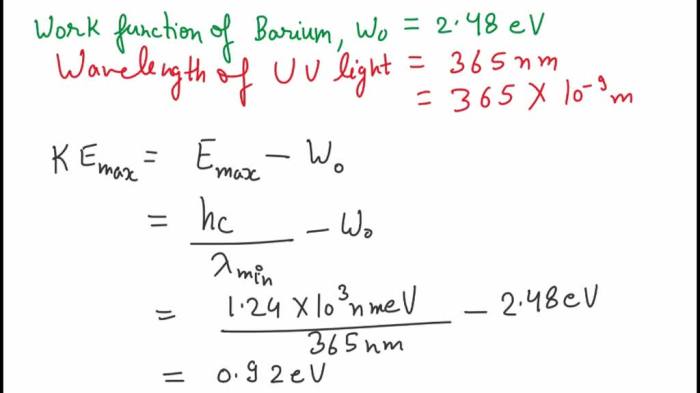 Work function of Barium, W₀ = 2.48 eV
Wavelength of UV light = 365 nm
= 365 X 10⁻⁹ m
K Emax = Emax - W₀
= hc / λmin - W₀
= 1.24 X 10³ nm eV / 365 nm - 2.48 eV
= 0.92 eV